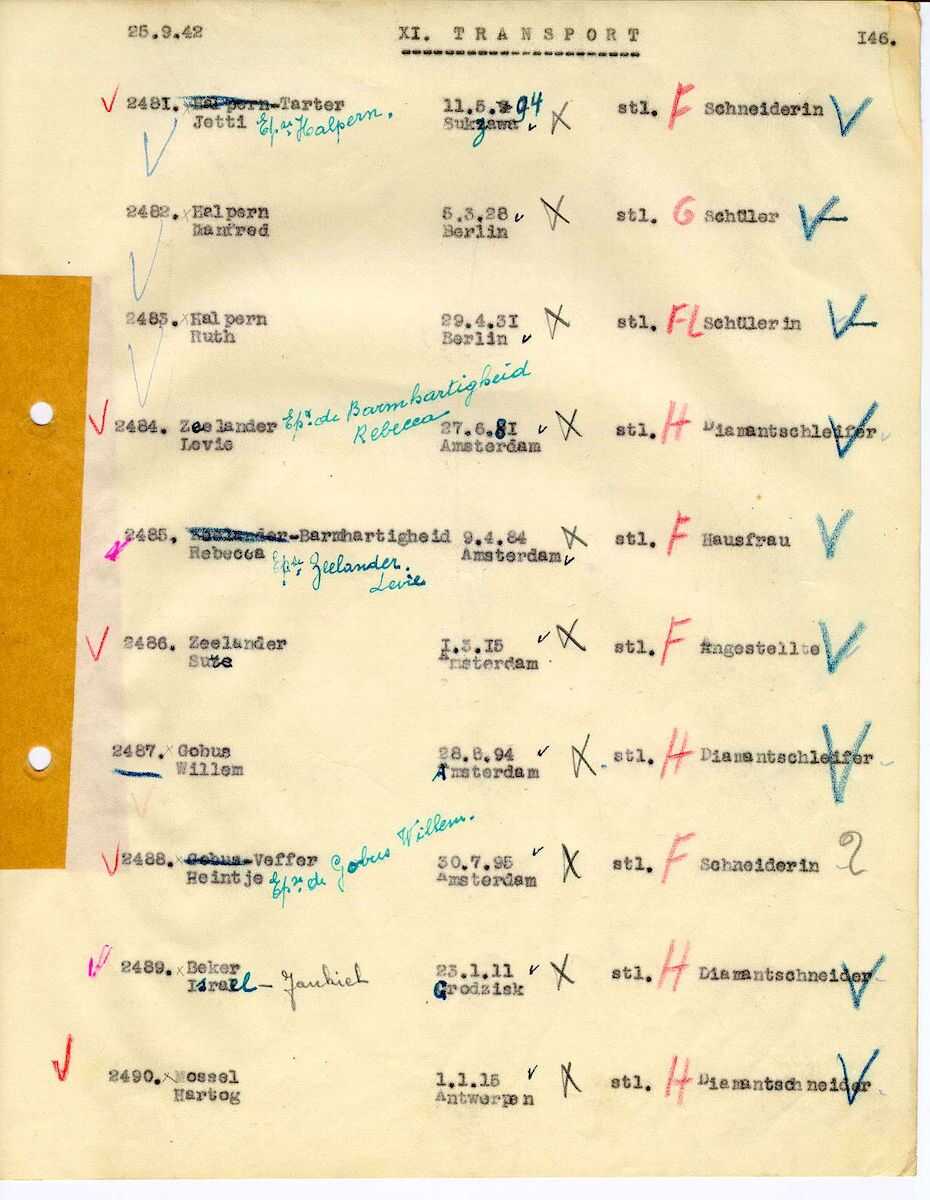 25.9.42 XI. TRANSPORT 146.
2481. Halpern-Tarter 11.5. 94 stl. F Schneiderin
Jetti Epse Halpern. Suczawa
2482. Halpern 5.3.28 stl. G Schüler
Manfred Berlin
2483. Halpern 29.4.31 stl. FL Schülerin
Ruth Berlin
2484. Zeelander Epx de Barmhartigheid 27.6.81 stl. H Diamantschleifer
Levie Rebecca Amsterdam
2485. Zeelander-Barmhartigheid 9.4.84 stl. F Hausfrau
Rebecca Epse Zeelander. Amsterdam
Levie
2486. Zeelander 1.3.15 stl. F Angestellte
Amsterdam
2487. Gobus 28.8.94 stl. H Diamantschleifer
Willem Amsterdam
2488. Gobus-Veffer 30.7.95 stl. F Schneiderin
Heintje Epse de Gobus Willem. Amsterdam
2489. Beker 23.1.11 stl. H Diamantschneider
Israel - Grodzisk
2490. Mossel 1.1.15 stl. H Diamantschneider
Hartog Antwerpen